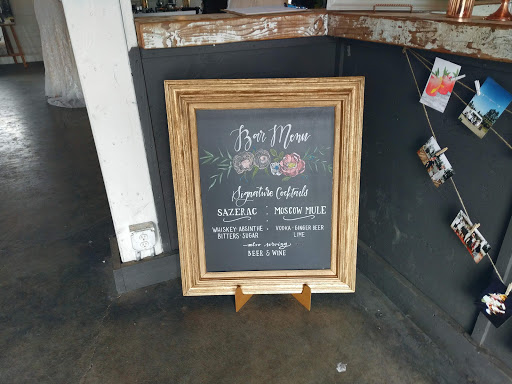 Bar Menu
Signature Cocktails
SAZERAC
WHISKEY · ABSINTHE
BITTERS · SUGAR
MOSCOW MULE
VODKA · GINGER BEER
LIME
also serving
BEER & WINE